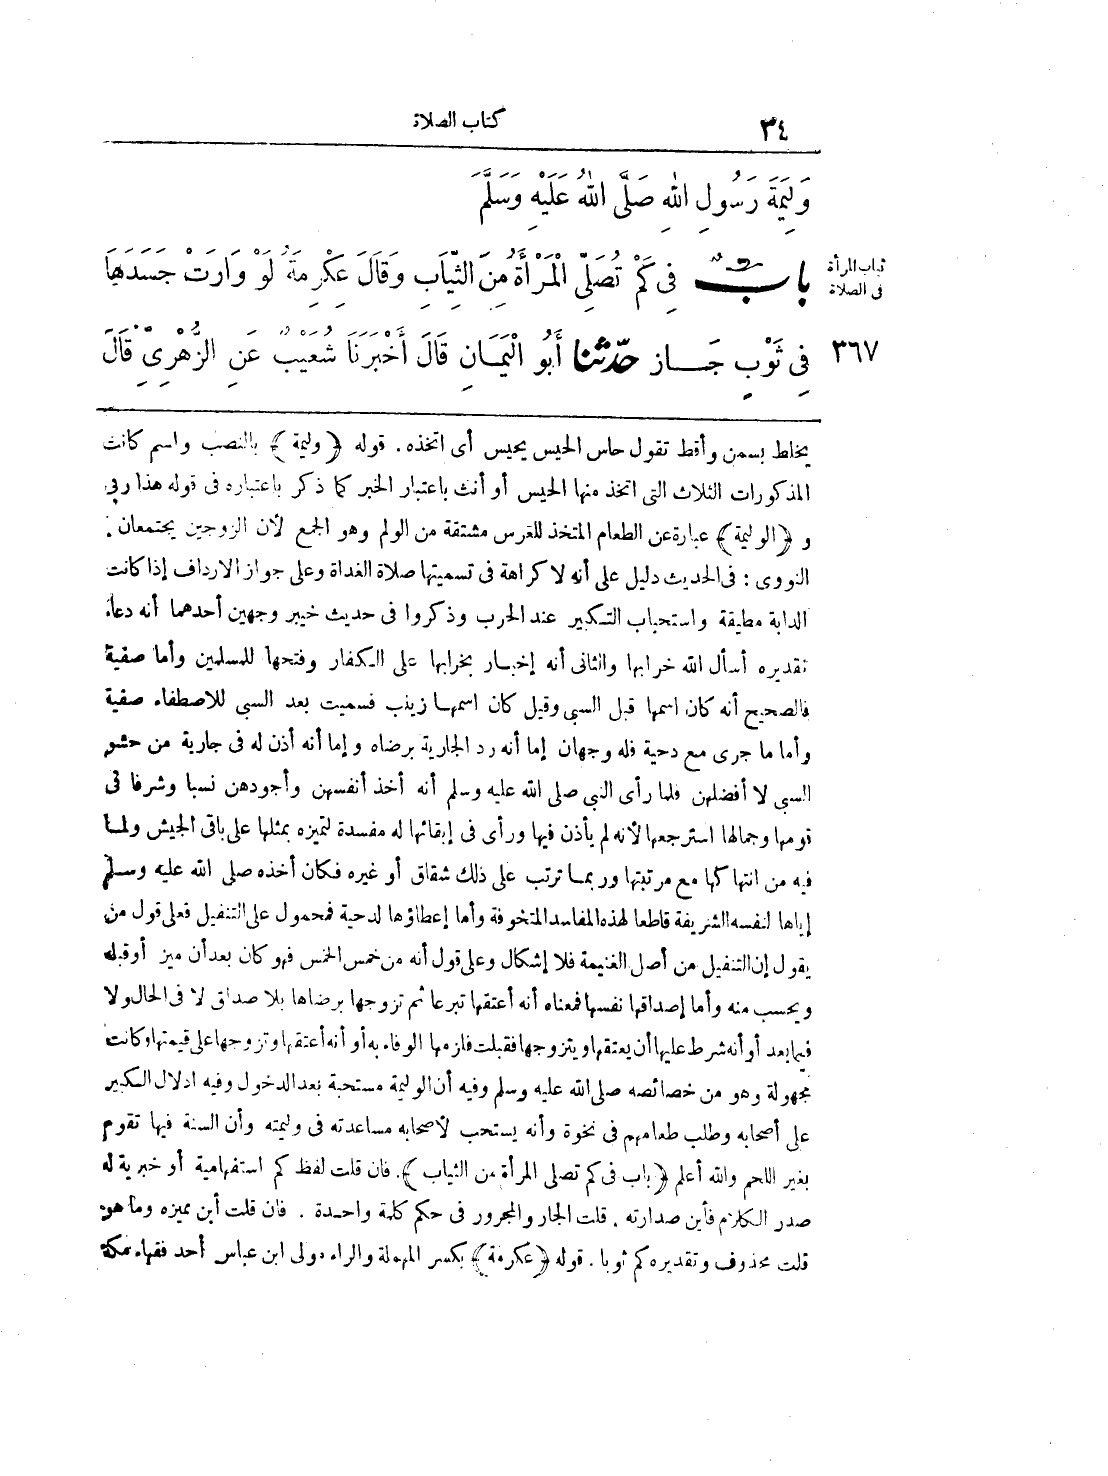 ٣٤
كتاب الصلاة
وَلِيمَةَ رَسُولِ اللهِ صَلَّى اللهُ عَلَيْهِ وَسَلَّمَ
بابٌ فِي كَمْ تُصَلِّي الْمَرْأَةُ مِنَ الثِّيَابِ وَقَالَ عِكْرِمَةُ لَوْ وَارَتْ جَسَدَهَا
ثياب المرأة
فى الصلاة
فِي ثَوْبٍ جَــازَ حدثنا أَبُو الْيَمَـانِ قَالَ أَخْبَرَنَا شُعَيْبٌ عَنِ الزُّهْرِيِّ قَالَ
٣٦٧
يخلط بسمن وأقط تقول حاس الحيس يحيس أى اتخذه. قوله ﴿وليمة﴾ بالنصب واسم كانت
المذكورات الثلاث التى اتخذ منها الحيس أو أنث باعتبار الخبر كما ذكر باعتباره فى قوله هذا ربى
و ﴿الوليمة﴾ عبارة عن الطعام المتخذ للعرس مشتقة من الولم وهو الجمع لأن الزوجين يجتمعان.
النووى: فى الحديث دليل على أنه لا كراهة فى تسميتها صلاة الغداة وعلى جواز الارداف إذا كانت
الدابة مطيقة واستحباب التكبير عند الحرب وذكروا فى حديث خيبر وجهين أحدهما أنه دعاء
تقديره أسأل الله خرابها والثانى أنه إخبـار بخرابها على الكفار وفتحها للمسلمين وأما صفية
فالصحيح أنه كان اسمها قبل السبى وقيل كان اسمهـا زينب فسميت بعد السبى للاصطفاء صفية
وأما ما جرى مع دحية فله وجهان إما أنه رد الجارية برضاه وإما أنه أذن له فى جارية من حشو
السبى لا أفضلهن فلما رأى النبى صلى الله عليه وسلم أنه أخذ أنفسهن وأجودهن نسبا وشرفا فى
قومها وجمالها استرجعها لأنه لم يأذن فيها ورأى فى إبقائها له مفسدة لتميزه بمثلها على باقى الجيش ولمـا
فيه من انتهاكها مع مرتبتها وربمـا ترتب على ذلك شقاق أو غيره فكان أخذه صلى الله عليه وسـلم
إياها لنفسه الشريفة قاطعا لهذه المفاسد المتخوفة وأما إعطاؤها لدحية فمحمول على التنفيل فعلى قول من
يقول إن التنفيل من أصل الغنيمة فلا إشكال وعلى قول أنه من خمس الخمس فهو كان بعد أن ميز أو قبله
ويحسب منه وأما إصداقها نفسها فمعناه أنه أعتقها تبرعا ثم تزوجها برضاها بلا صداق لا فى الحال ولا
فيما بعد أو أنه شرط عليها أن يعتقها ويتزوجها فقبلت فلزمها الوفاء به أو أنه أعتقها وتزوجها على قيمتها وكانت
مجهولة وهو من خصائصه صلى الله عليه وسلم وفيه أن الوليمة مستحبة بعد الدخول وفيه ادلال الكبير
على أصحابه وطلب طعامهم فى نحوه وأنه يستحب لأصحابه مساعدته فى وليمته وأن السنة فيها تقوم
بغير اللحم والله أعلم ﴿باب فى كم تصلى المرأة من الثياب﴾. فان قلت لفظ كم استفهامية أو خبرية له
صدر الكلام فأين صدارته. قلت الجار والمجرور فى حكم كلمة واحـدة. فان قلت أين مميزه وما هو
قلت محذوف وتقديره كم ثوبا. قوله ﴿عكرمة﴾ بكسر المهملة والراء مولى ابن عباس أحد فقهاء مكة